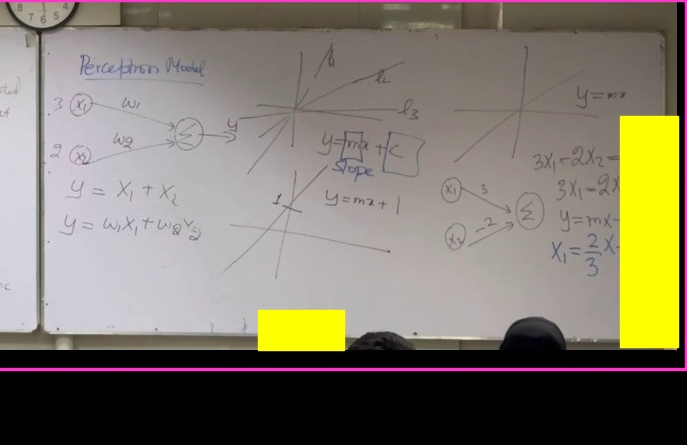 Perceptron Model
3 X1 W1
Σ y
2 X2 W2
y = X1 + X2
y = W1X1 + W2X2
l1
l2
l3
y = mx + C
Slope
1
y = mx + 1
y = mx
3X1 - 2X2 =
3X1 - 2X
X1 3
Σ
X2 -2
y = mx -
X1 = 2/3 X